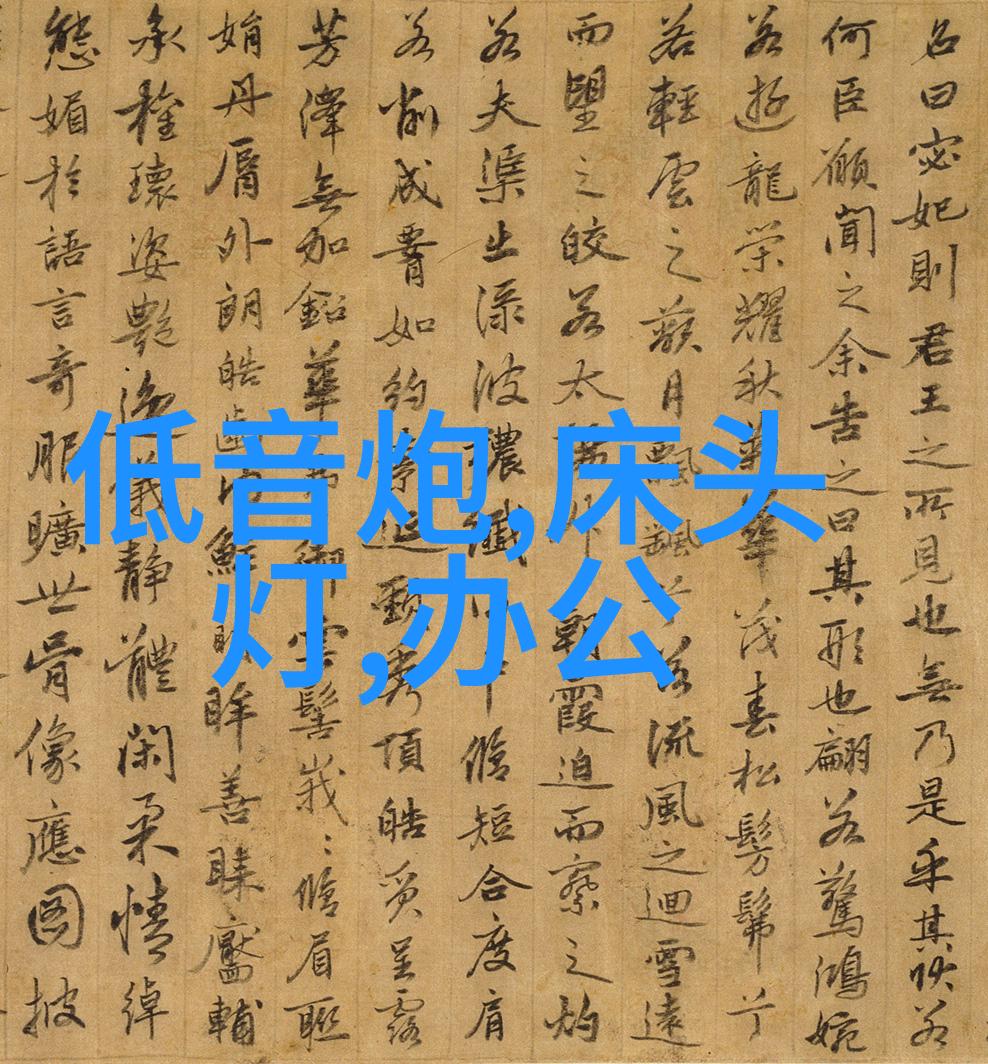 低音炮,床头
灯,办公
名曰宓妃則君王之所見也無乃是乎其狀若
何臣願聞之余告之曰其形也翩若驚鴻婉
若遊龍榮耀秋菊華茂春松髣髴兮
若輕雲之蔽月飄颻兮若流風之迴雪遠
而望之皎若太陽升朝霞迫而察之灼
若夫渠出淥波穠纖得中脩短合度肩
若削成腰如約素延頸秀項皓質呈露
芳澤無加鉛華弗御雲髻峩〻脩眉聯
娟丹脣外朗皓齒內鮮明眸善睞靨輔
承權瓌姿艷逸儀靜體閑柔情綽
態媚於語言奇服曠世骨像應圖披